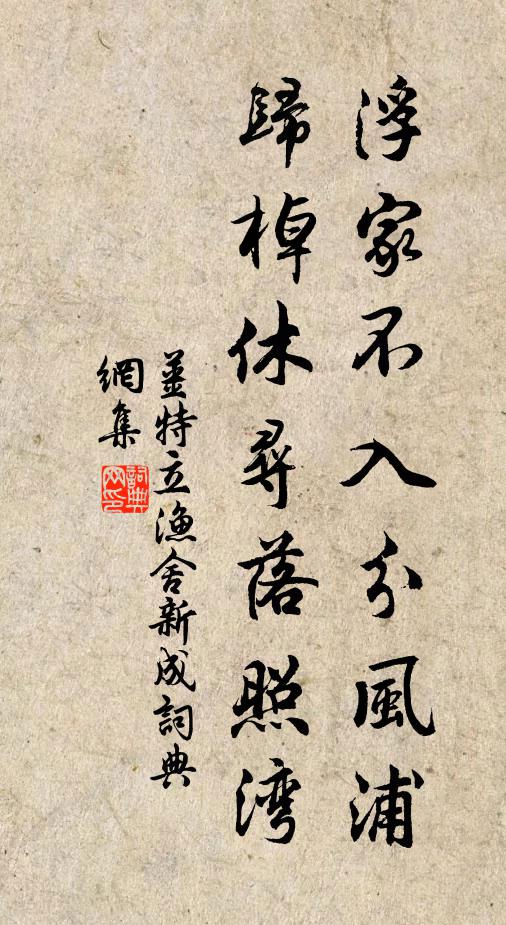 浮家不入分風浦
歸棹休尋落照湾
姜特立漁舍新成詞典
網集
詞典
网印